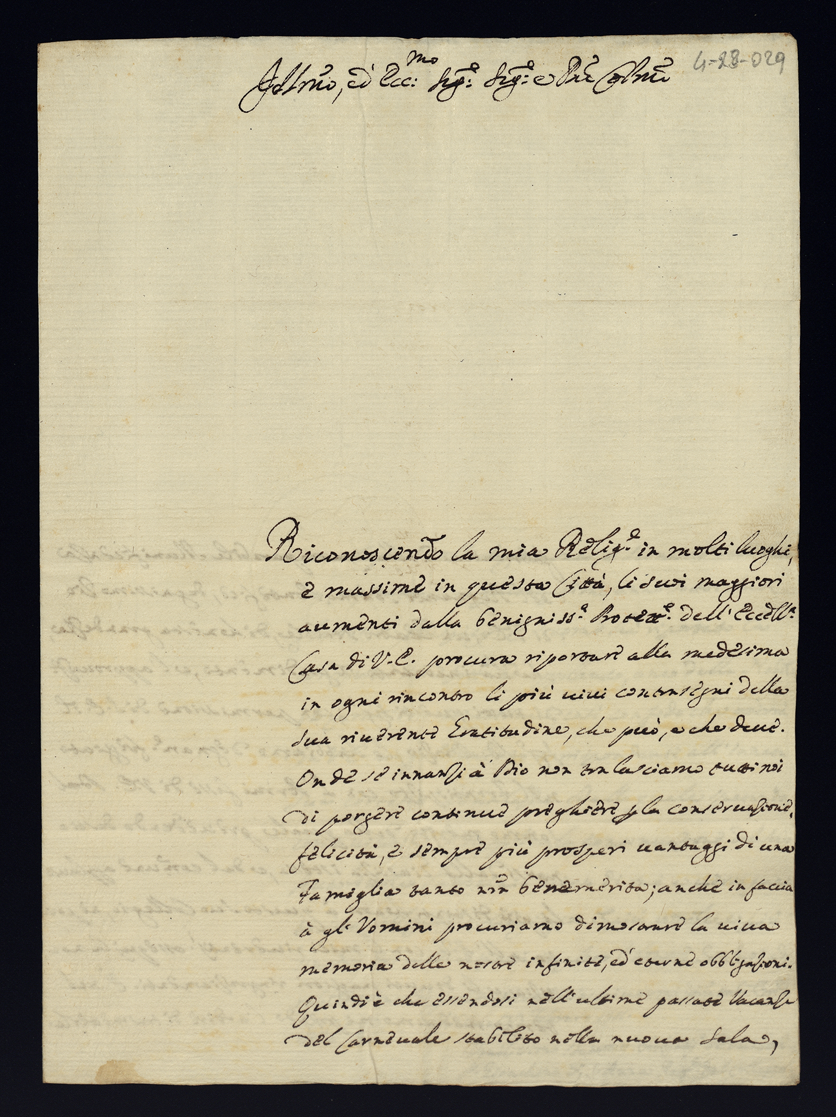 4-28-029
Ill.mo, ed Ecc.mo Sig.e Sig.e e P.ne Col.mo
Riconoscendo la mia Relig.e in molti luoghi,
e massime in questa Città, li suoi maggiori
aumenti dalla benigniss.a Protez.e dell'Eccell.a
Casa di V.E. procura riportare alla medesima
in ogni rincontro li più vivi contrasegni della
sua riverente Gratitudine, che può, e che deve.
Onde se innanzi à Dio non tralasciamo tutti noi
di porgere continue preghiere p la conservazione,
felicità, e sempre più prosperi vantaggi di una
Famiglia tanto nrā benemerita; anche in faccia
à gl'Uomini procuriamo dimostrare la viva
memoria delle nostre infinite, ed eterne obbligazioni.
Quindi è che essendosi nell'ultime passate Vacanze
del Carnevale stabilito nella nuova Sala,